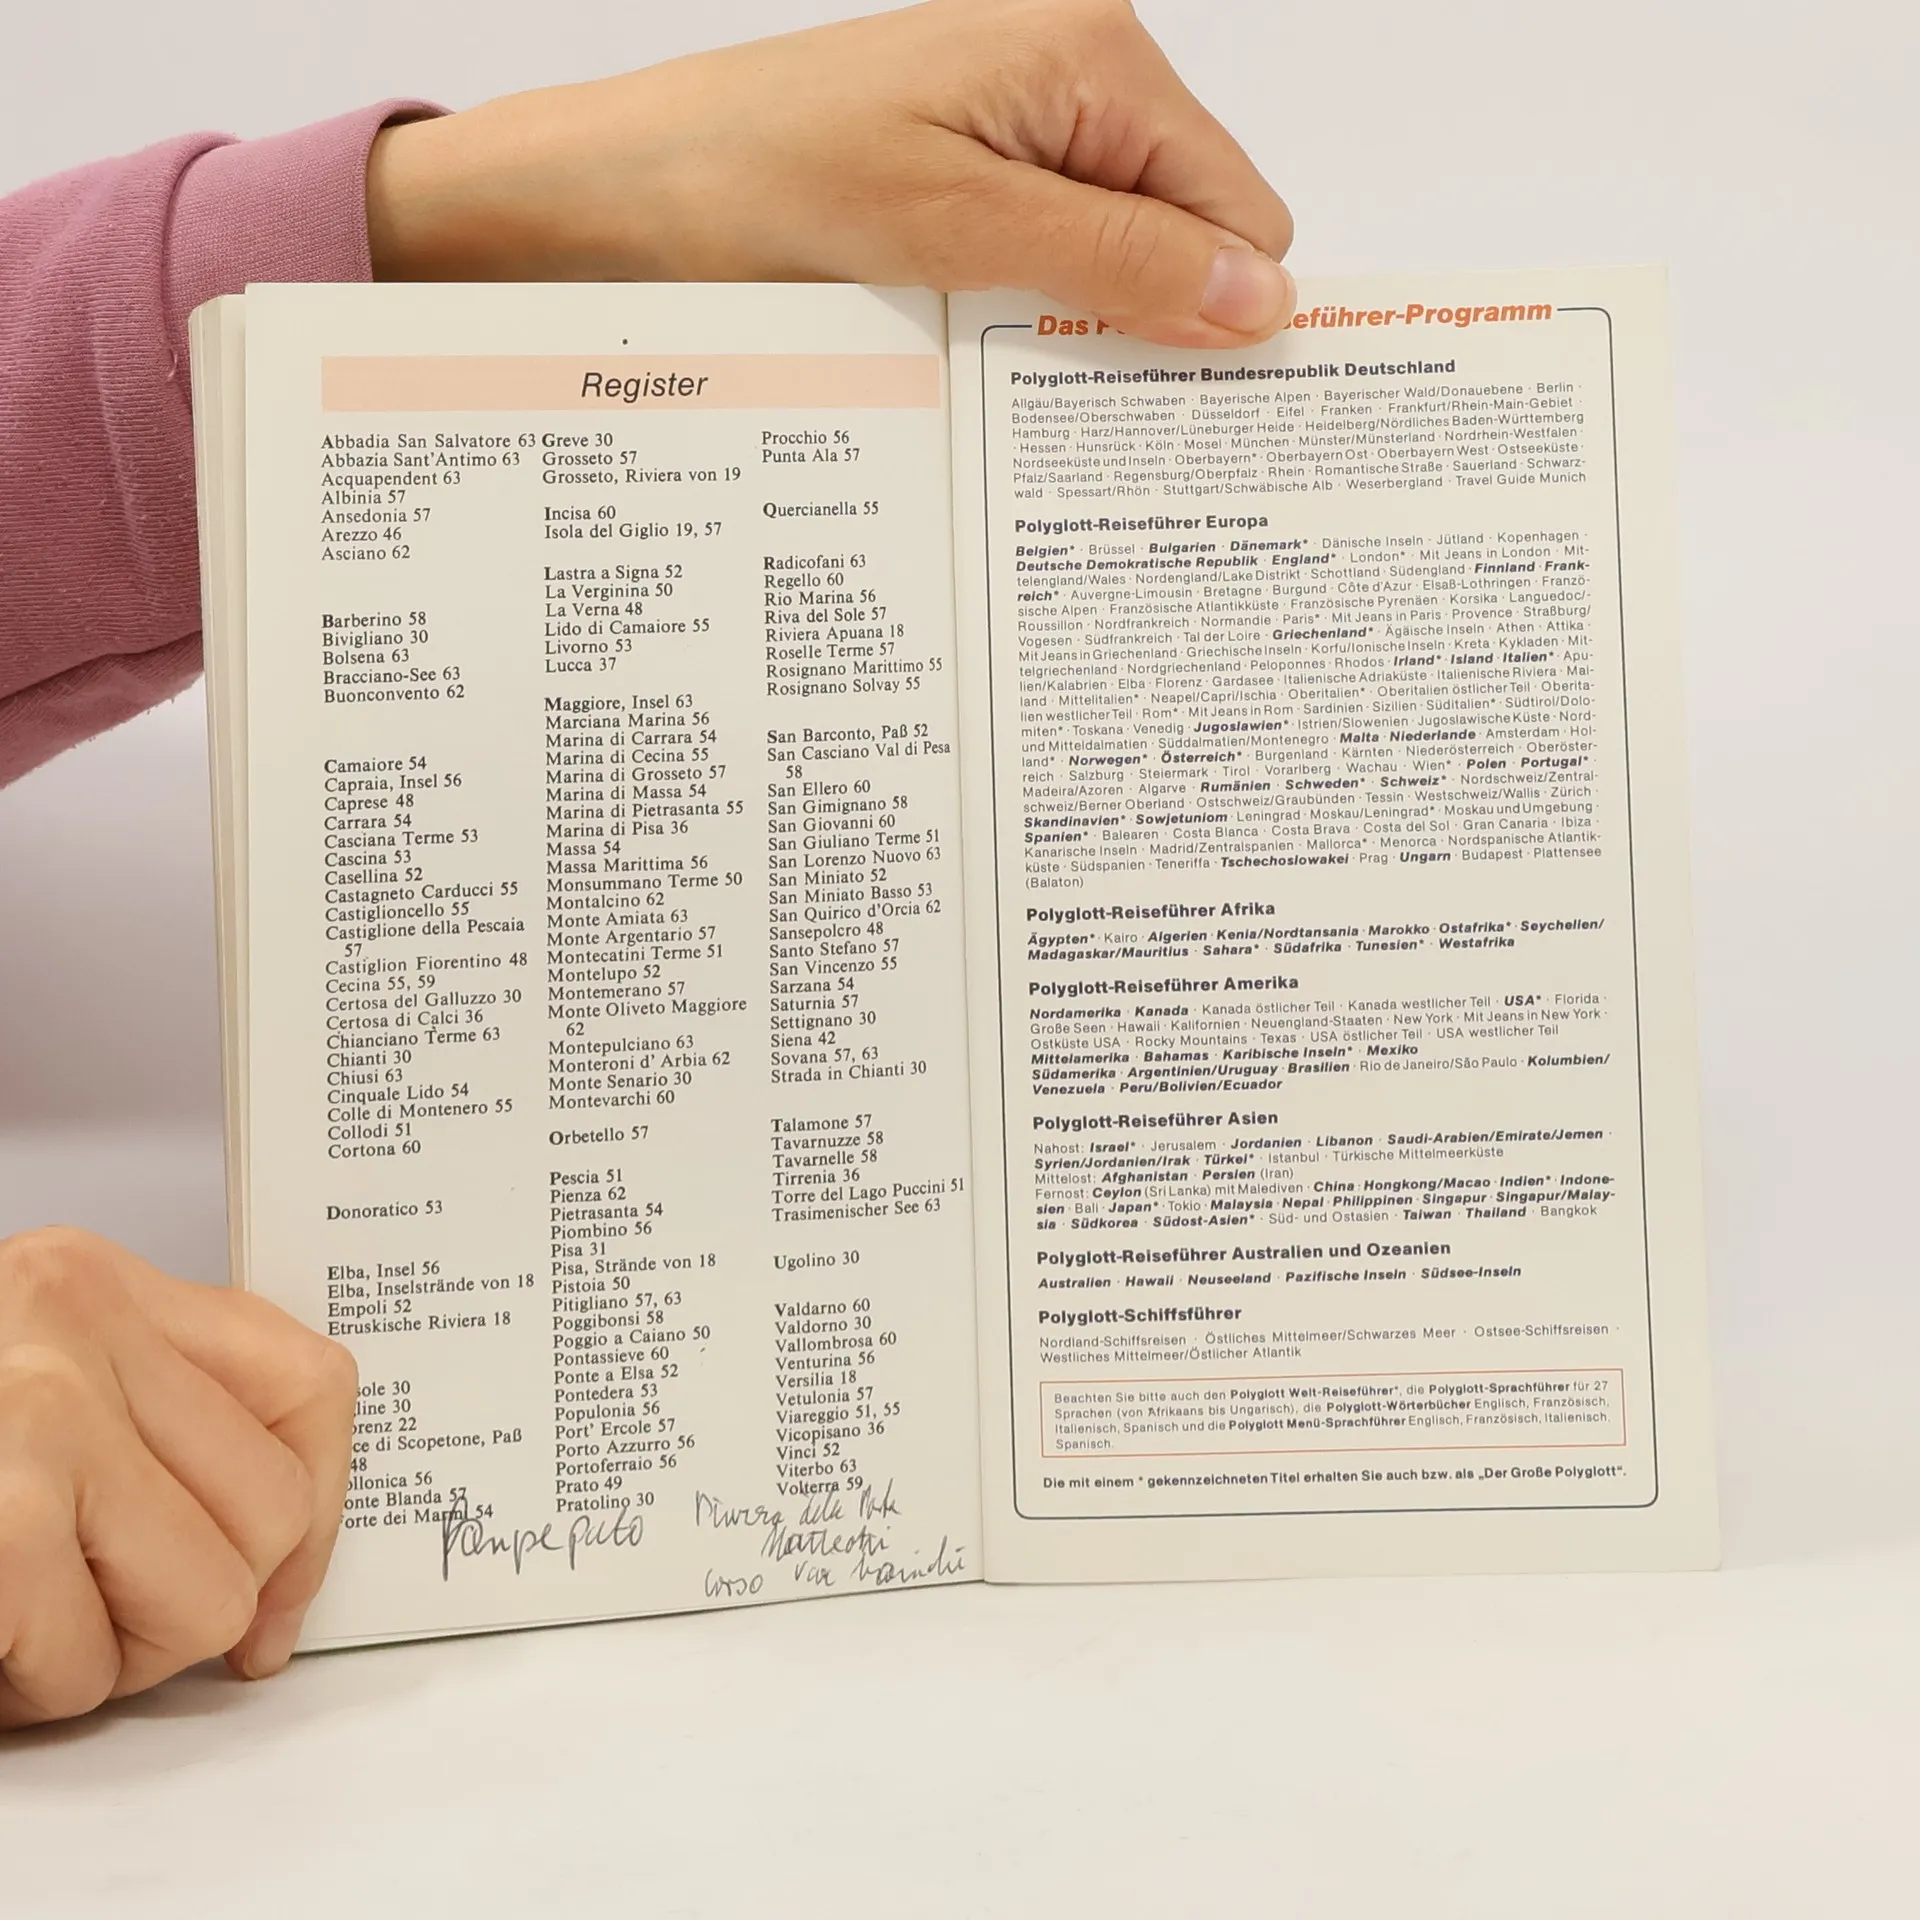 Register
Abbadia San Salvatore 63
Abbazia Sant'Antimo 63
Acquapendent 63
Albinia 57
Ansedonia 57
Arezzo 46
Asciano 62
Barberino 58
Bivigliano 30
Bolsena 63
Bracciano-See 63
Buonconvento 62
Camaiore 54
Capraia, Insel 56
Caprese 48
Carrara 54
Casciana Terme 53
Cascina 53
Casellina 52
Castagneto Carducci 55
Castiglioncello 55
Castiglione della Pescaia
57
Castiglion Fiorentino 48
Cecina 55, 59
Certosa del Galluzzo 30
Certosa di Calci 36
Chianciano Terme 63
Chianti 30
Chiusi 63
Cinquale Lido 54
Colle di Montenero 55
Collodi 51
Cortona 60
Donoratico 53
Elba, Insel 56
Elba, Inselstrände von 18
Empoli 52
Etruskische Riviera 18
sole 30
line 30
orenz 22
ce di Scopetone, Paß
48
ollonica 56
onte Blanda 57
orte dei Marmi 54
Greve 30
Grosseto 57
Grosseto, Riviera von 19
Incisa 60
Isola del Giglio 19, 57
Lastra a Signa 52
La Verginina 50
La Verna 48
Lido di Camaiore 55
Livorno 53
Lucca 37
Maggiore, Insel 63
Marciana Marina 56
Marina di Carrara 54
Marina di Cecina 55
Marina di Grosseto 57
Marina di Massa 54
Marina di Pietrasanta 55
Marina di Pisa 36
Massa 54
Massa Marittima 56
Monsummano Terme 50
Montalcino 62
Monte Amiata 63
Monte Argentario 57
Montecatini Terme 51
Montelupo 52
Montemerano 57
Monte Oliveto Maggiore
62
Montepulciano 63
Monteroni d' Arbia 62
Monte Senario 30
Montevarchi 60
Orbetello 57
Pescia 51
Pienza 62
Pietrasanta 54
Piombino 56
Pisa 31
Pisa, Strände von 18
Pistoia 50
Pitigliano 57, 63
Poggibonsi 58
Poggio a Caiano 50
Pontassieve 60
Ponte a Elsa 52
Pontedera 53
Populonia 56
Port' Ercole 57
Porto Azzurro 56
Portoferraio 56
Prato 49
Pratolino 30
Procchio 56
Punta Ala 57
Quercianella 55
Radicofani 63
Regello 60
Rio Marina 56
Riva del Sole 57
Riviera Apuana 18
Roselle Terme 57
Rosignano Marittimo 55
Rosignano Solvay 55
San Barconto, Paß 52
San Casciano Val di Pesa
58
San Ellero 60
San Gimignano 58
San Giovanni 60
San Giuliano Terme 51
San Lorenzo Nuovo 63
San Miniato 52
San Miniato Basso 53
San Quirico d'Orcia 62
Sansepolcro 48
Santo Stefano 57
San Vincenzo 55
Sarzana 54
Saturnia 57
Settignano 30
Siena 42
Sovana 57, 63
Strada in Chianti 30
Talamone 57
Tavarnuzze 58
Tavarnelle 58
Tirrenia 36
Torre del Lago Puccini 51
Trasimenischer See 63
Ugolino 30
Valdarno 60
Valdorno 30
Vallombrosa 60
Venturina 56
Versilia 18
Vetulonia 57
Viareggio 51, 55
Vicopisano 36
Vinci 52
Viterbo 63
Volterra 59
Matteotti
Corso
Das eführer-Programm
Polyglott-Reiseführer Bundesrepublik Deutschland
Allgäu/Bayerisch Schwaben · Bayerische Alpen · Bayerischer Wald/Donauebene · Berlin ·
Bodensee/Oberschwaben · Düsseldorf · Eifel · Franken · Frankfurt/Rhein-Main-Gebiet ·
Hamburg · Harz/Hannover/Lüneburger Heide · Heidelberg/Nördliches Baden-Württemberg
· Hessen · Hunsrück · Köln · Mosel · München · Münster/Münsterland · Nordrhein-Westfalen ·
Nordseeküste und Inseln · Oberbayern* · Oberbayern Ost · Oberbayern West · Ostseeküste ·
Pfalz/Saarland · Regensburg/Oberpfalz · Rhein · Romantische Straße · Sauerland · Schwarz-
wald · Spessart/Rhön · Stuttgart/Schwäbische Alb · Weserbergland · Travel Guide Munich
Polyglott-Reiseführer Europa
Belgien* · Brüssel · Bulgarien · Dänemark* · Dänische Inseln · Jütland · Kopenhagen ·
Deutsche Demokratische Republik · England* · London* · Mit Jeans in London · Mit-
telengland/Wales · Nordengland/Lake Distrikt · Schottland · Südengland · Finnland · Frank-
reich* · Auvergne-Limousin · Bretagne · Burgund · Côte d'Azur · Elsaß-Lothringen · Franzö-
sische Alpen · Französische Atlantikküste · Französische Pyrenäen · Korsika · Languedoc/-
Roussillon · Nordfrankreich · Normandie · Paris* · Mit Jeans in Paris · Provence · Straßburg/
Vogesen · Südfrankreich · Tal der Loire · Griechenland* · Ägäische Inseln · Athen · Attika ·
Mit Jeans in Griechenland · Griechische Inseln · Korfu/Ionische Inseln · Kreta · Kykladen · Mit-
telgriechenland · Nordgriechenland · Peloponnes · Rhodos · Irland* · Island · Italien* · Apu-
lien/Kalabrien · Elba · Florenz · Gardasee · Italienische Adriaküste · Italienische Riviera · Mai-
land · Mittelitalien* · Neapel/Capri/Ischia · Oberitalien* · Oberitalien östlicher Teil · Oberita-
lien westlicher Teil · Rom* · Mit Jeans in Rom · Sardinien · Sizilien · Süditalien* · Südtirol/Dolo-
miten* · Toskana · Venedig · Jugoslawien* · Istrien/Slowenien · Jugoslawische Küste · Nord-
und Mitteldalmatien · Süddalmatien/Montenegro · Malta · Niederlande · Amsterdam · Hol-
land* · Norwegen* · Österreich* · Burgenland · Kärnten · Niederösterreich · Oberöster-
reich · Salzburg · Steiermark · Tirol · Vorarlberg · Wachau · Wien* · Polen · Portugal* ·
Madeira/Azoren · Algarve · Rumänien · Schweden* · Schweiz* · Nordschweiz/Zentral-
schweiz/Berner Oberland · Ostschweiz/Graubünden · Tessin · Westschweiz/Wallis · Zürich ·
Skandinavien* · Sowjetuniom · Leningrad · Moskau/Leningrad* · Moskau und Umgebung ·
Spanien* · Balearen · Costa Blanca · Costa Brava · Costa del Sol · Gran Canaria · Ibiza ·
Kanarische Inseln · Madrid/Zentralspanien · Mallorca* · Menorca · Nordspanische Atlantik-
küste · Südspanien · Teneriffa · Tschechoslowakei · Prag · Ungarn · Budapest · Plattensee
(Balaton)
Polyglott-Reiseführer Afrika
Ägypten* · Kairo · Algerien · Kenia/Nordtansania · Marokko · Ostafrika* · Seychellen/
Madagaskar/Mauritius · Sahara* · Südafrika · Tunesien* · Westafrika
Polyglott-Reiseführer Amerika
Nordamerika · Kanada · Kanada östlicher Teil · Kanada westlicher Teil · USA* · Florida ·
Große Seen · Hawaii · Kalifornien · Neuengland-Staaten · New York · Mit Jeans in New York ·
Ostküste USA · Rocky Mountains · Texas · USA östlicher Teil · USA westlicher Teil
Mittelamerika · Bahamas · Karibische Inseln* · Mexiko
Südamerika · Argentinien/Uruguay · Brasilien · Rio de Janeiro/São Paulo · Kolumbien/
Venezuela · Peru/Bolivien/Ecuador
Polyglott-Reiseführer Asien
Nahost: Israel* · Jerusalem · Jordanien · Libanon · Saudi-Arabien/Emirate/Jemen ·
Syrien/Jordanien/Irak · Türkei* · Istanbul · Türkische Mittelmeerküste
Mittelost: Afghanistan · Persien (Iran)
Fernost: Ceylon (Sri Lanka) mit Malediven · China · Hongkong/Macao · Indien* · Indone-
sien · Bali · Japan* · Tokio · Malaysia · Nepal · Philippinen · Singapur · Singapur/Malay-
sia · Südkorea · Südost-Asien* · Süd- und Ostasien · Taiwan · Thailand · Bangkok
Polyglott-Reiseführer Australien und Ozeanien
Australien · Hawaii · Neuseeland · Pazifische Inseln · Südsee-Inseln
Polyglott-Schiffsführer
Nordland-Schiffsreisen · Östliches Mittelmeer/Schwarzes Meer · Ostsee-Schiffsreisen ·
Westliches Mittelmeer/Östlicher Atlantik
Beachten Sie bitte auch den Polyglott Welt-Reiseführer*, die Polyglott-Sprachführer für 27
Sprachen (von Afrikaans bis Ungarisch), die Polyglott-Wörterbücher Englisch, Französisch,
Italienisch, Spanisch und die Polyglott Menü-Sprachführer Englisch, Französisch, Italienisch,
Spanisch.
Die mit einem * gekennzeichneten Titel erhalten Sie auch bzw. als „Der Große Polyglott".